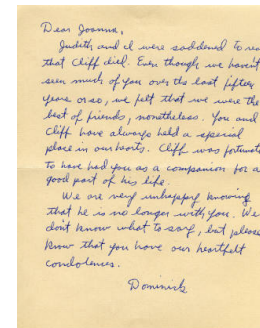 Dear Joanna,
Judith and I were saddened to rea
that Cliff died. Even though we haven't
seen much of you over the last fifteen
years or so, we felt that we were the
best of friends, nonetheless. You and
Cliff have always held a special
place in our hearts. Cliff was fortunate
to have had you as a companion for a
good part of his life.
We are very unhappy knowing
that he is no longer with you. We
don't know what to say, but please
know that you have our heartfelt
condolences.
Dominick